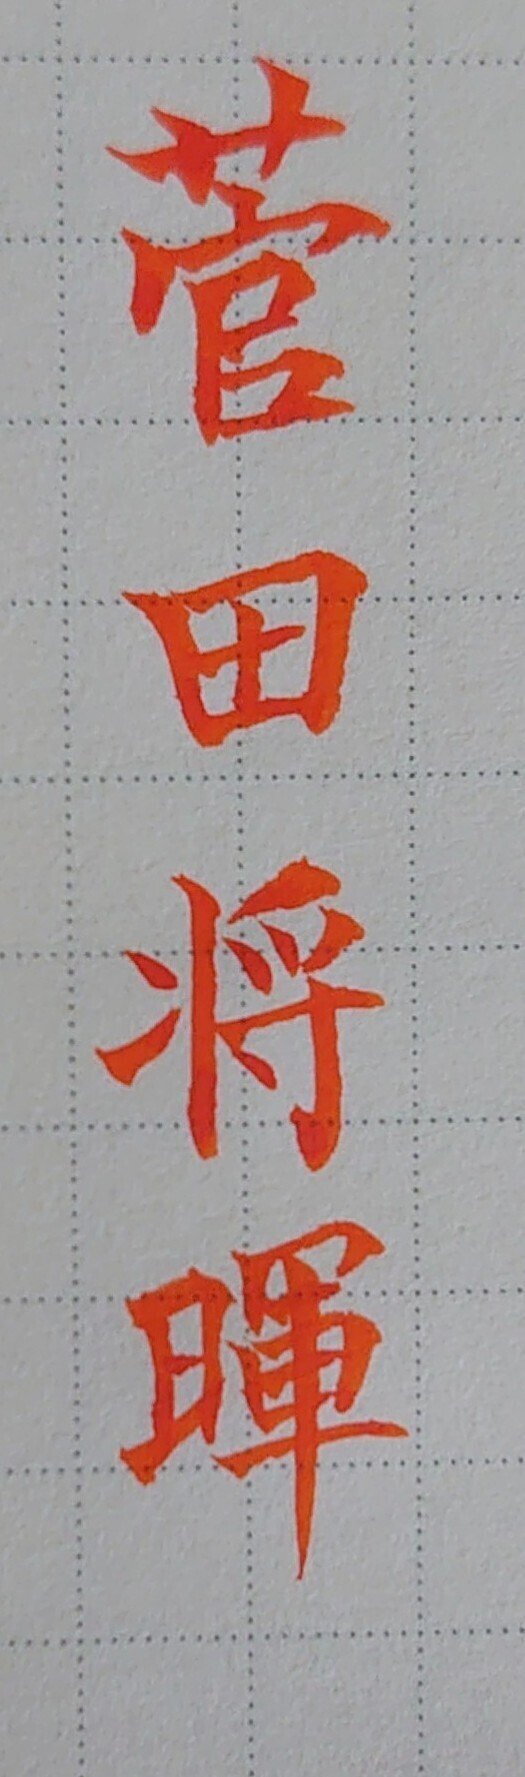 菅田将暉